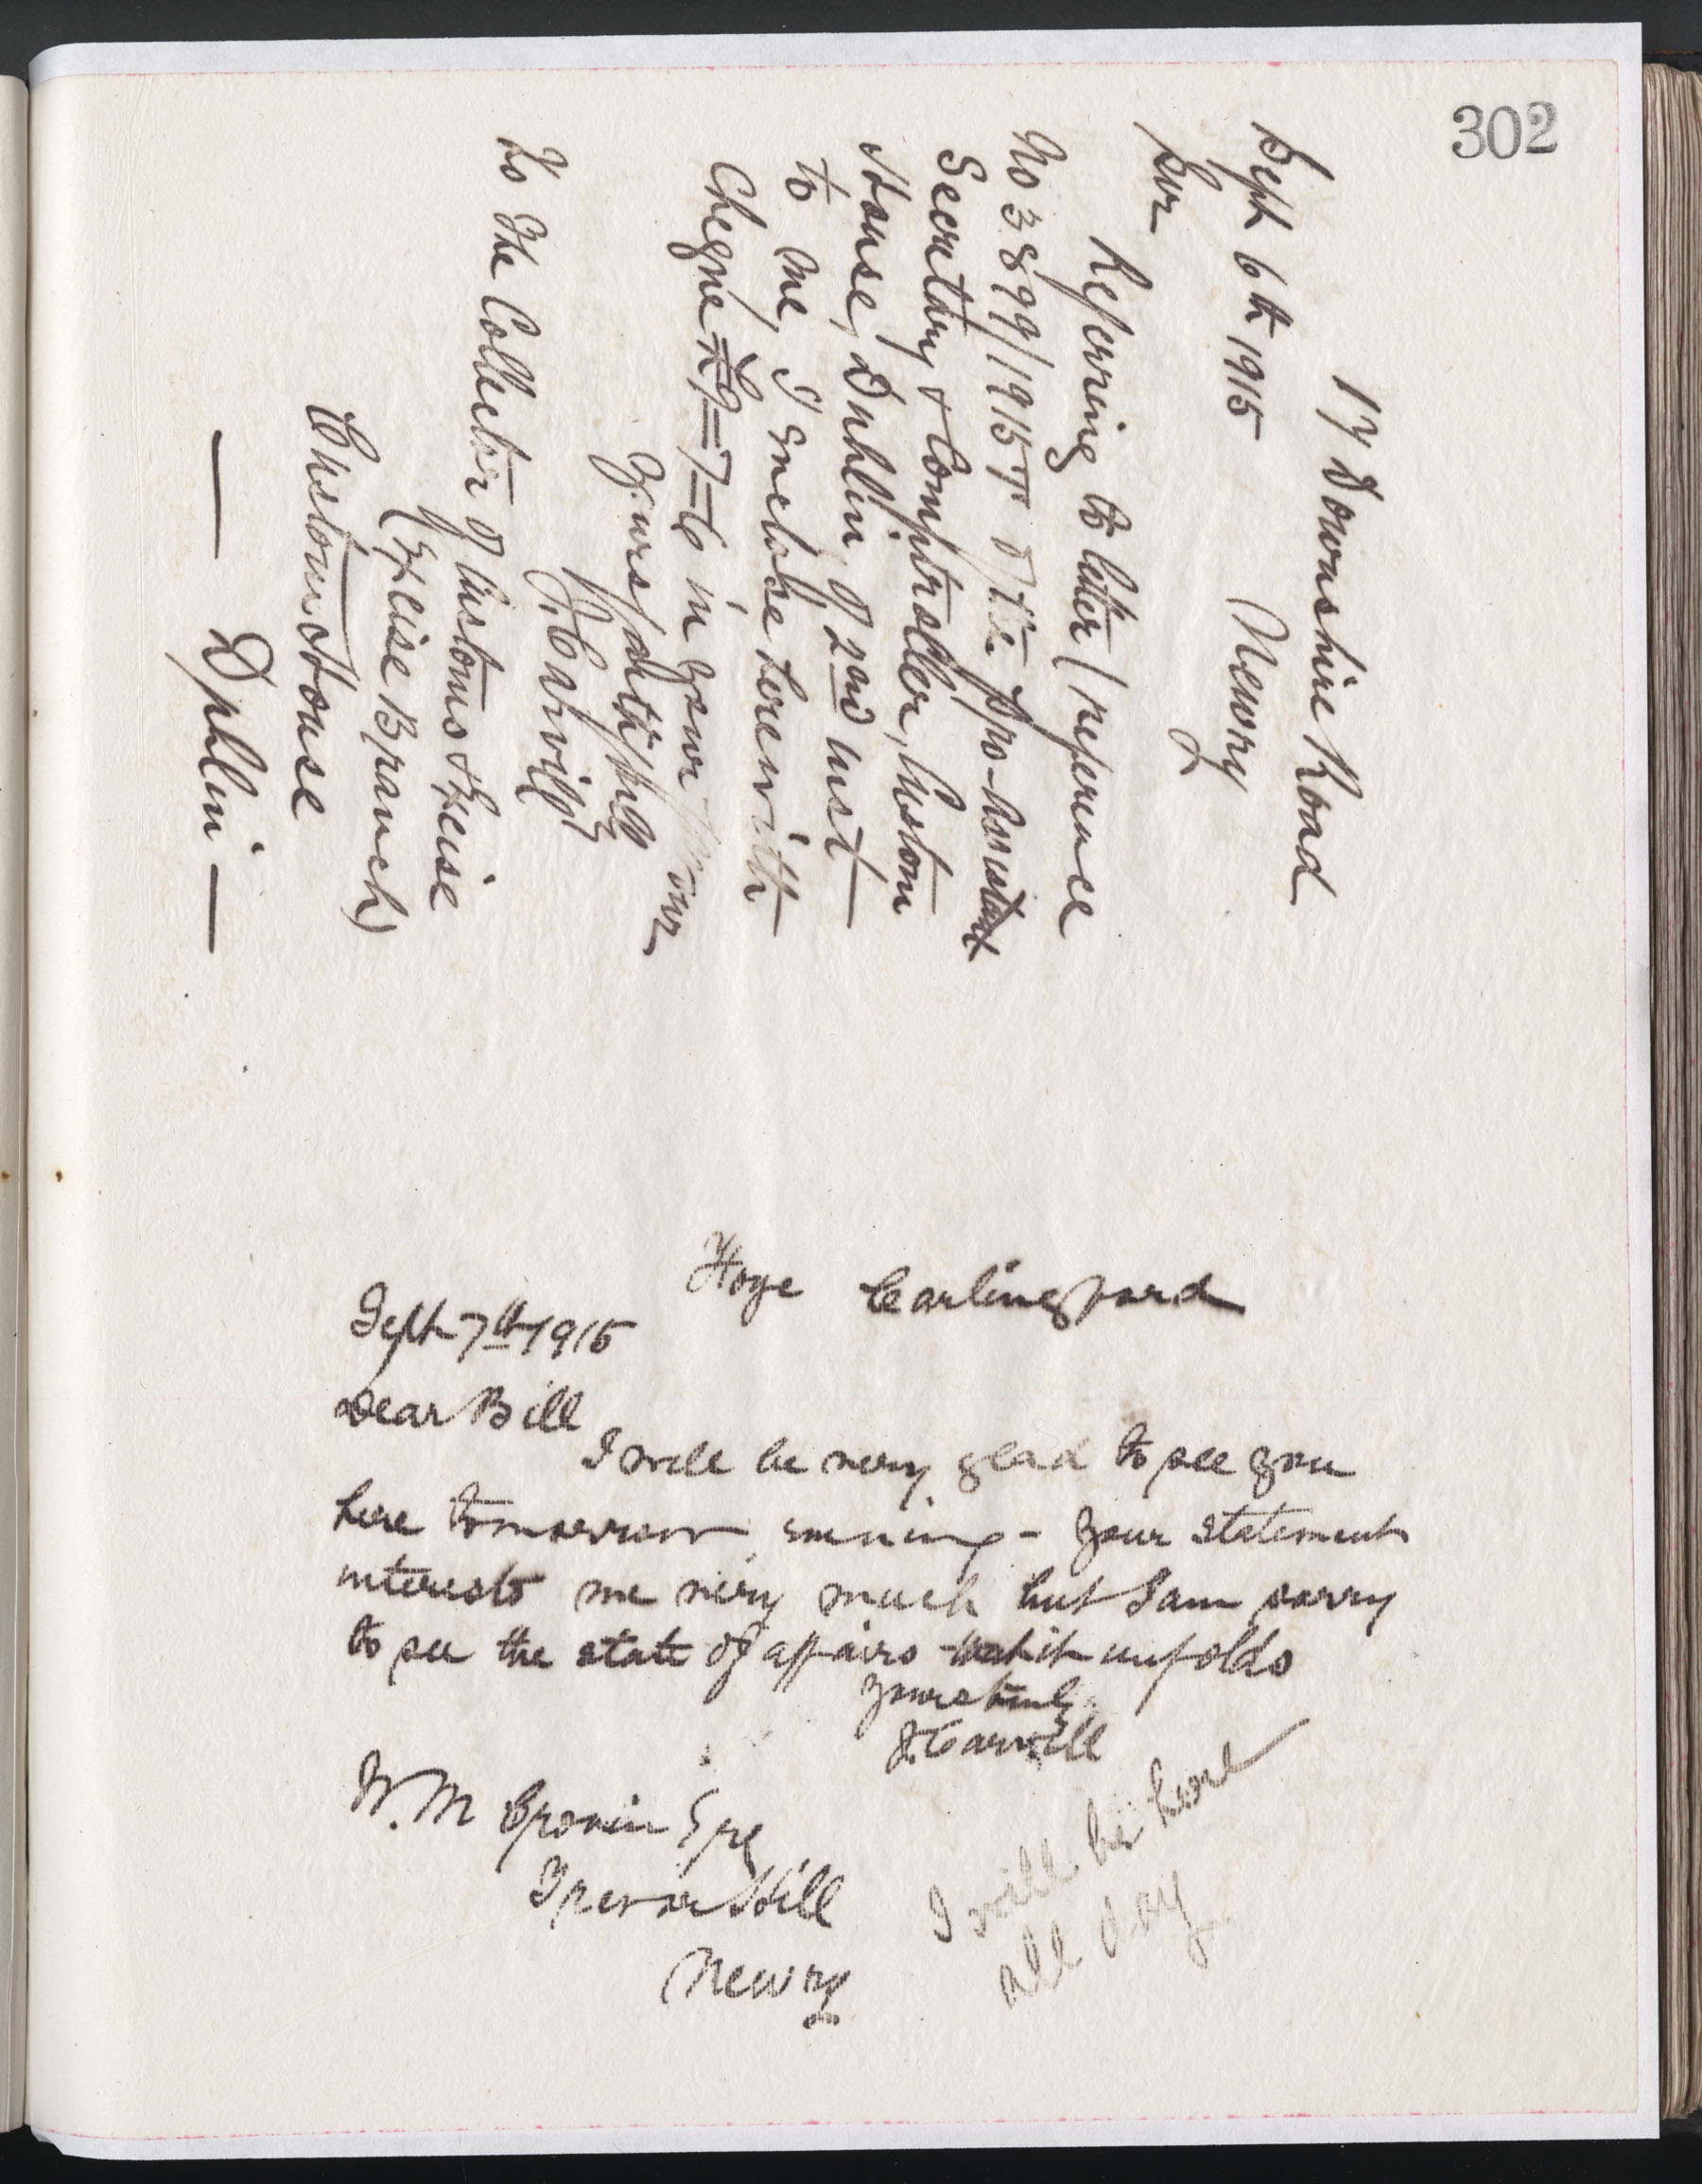 302
17 Downshire Road
Newry
Sept 6th 1915
Sir
Referring to letter (reference
No 3899/1915 T of the pro-Assistant
Secretary & Comptroller, Custom
House, Dublin, of 2nd inst
to me, I enclose herewith
Cheque £9=7=6 in your favour
Yours faithfully
J. Carvill
To The Collector of Customs & Excise
(Excise Branch)
Custom House
Dublin
Carlingford
Sept 7th 1915
Dear Bill
I will be very glad to see you
here tomorrow evening - your statement
interests me very much but I am sorry
to see the state of affairs it unfolds
Yours truly
J. Carvill
W. M Cronin Esq
Trevor Hill
Newry
I will be here
all day